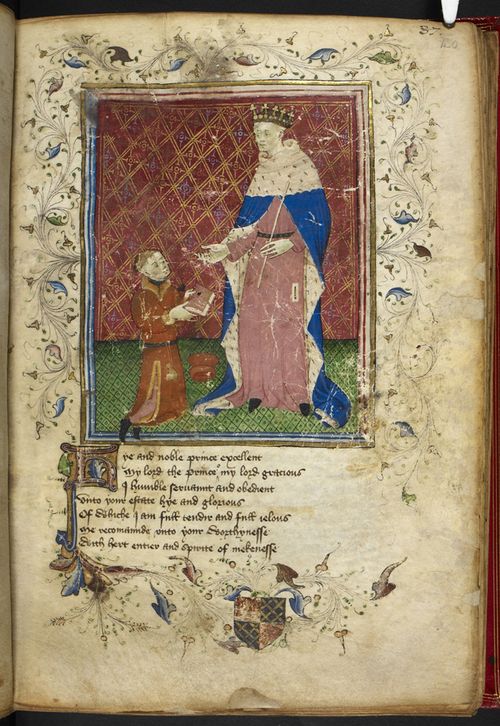 Hye and noble prince excellent
My lord the prince my lord gracious
I humble servaunt and obedient
Unto your estate hye and glorious
Of Whiche I am full tendre and full ielous
Me recomaunde unto your Worthynesse
With hert entier and spirite of mekenesse